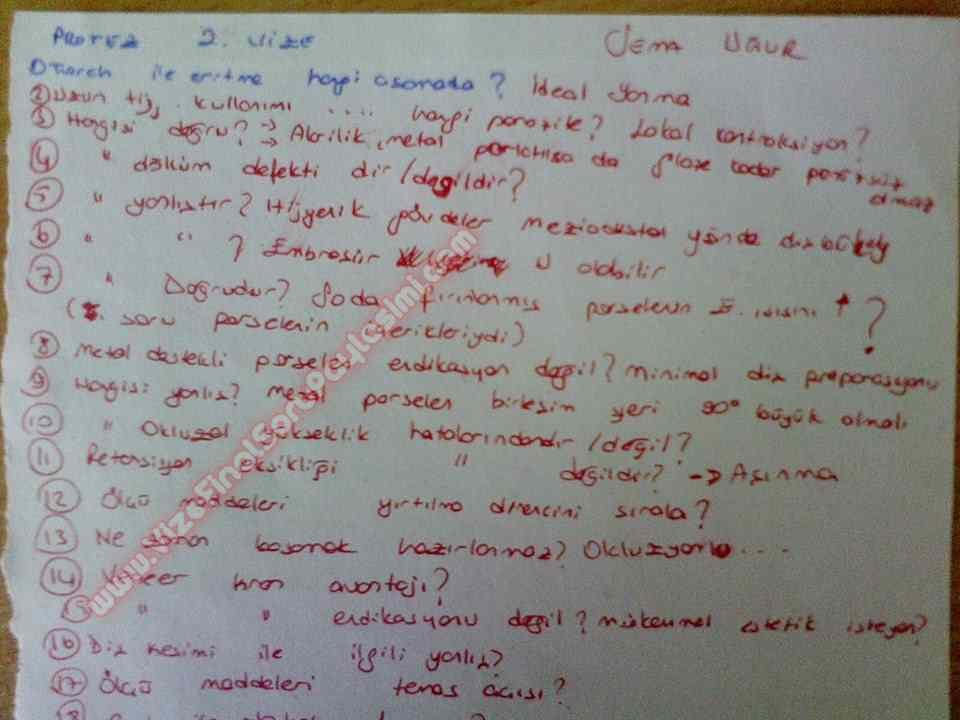 PROTEZ 2. VİZE Sema UĞUR
① Torch ile eritme hangi aşamada? İdeal yanma
② Uzun tij kullanımı .... hangi porotikte? Lokal kontraksiyon?
③ Hangisi doğru? → Akrilik, metal parlatılsa da glaze kadar pürüzsüz olmaz
④ " döküm defekti dir / değildir?
⑤ " yanlıştır? Hijyenik gövdeler meziodistal yönde dışbükey
⑥ " " ? Embraşür U olabilir
⑦ " Doğrudur? Soda fırınlanmış porselenin I. ısısını + ?
( . soru porselenin içerikleriydi)
⑧ Metal destekli porselen endikasyon değil? Minimal diş preparasyonu
⑨ Hangisi yanlış? Metal porselen birleşim yeri 90° büyük olmalı
⑩ " Okluzal yükseklik hatalarındandır / değil?
⑪ Retansiyon eksikliği " değildir? → Aşınma
⑫ Ölçü maddeleri yırtılma direncini sırala?
⑬ Ne zaman basamak hazırlanmaz? Okluzyonla ...
⑭ Veneer kron avantajı?
15 " " endikasyonu değil? mükemmel estetik isteyen?
⑯ Diş kesimi ile ilgili yanlış?
⑰ Ölçü maddeleri temas açısı?
18
www.VizeSinavSoruPaylasimi.com